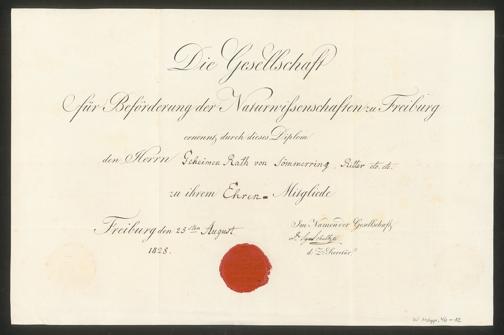 Die Gesellschaft
für Beförderung der Naturwissenschaften zu Freiburg
ernennt, durch dieses Diplom
den Herrn Geheimen Rath von Sömmerring, Ritter etc. etc.
zu ihrem Ehren- Mitgliede
Freiburg den 23sten August
1828.
Im Namen der Gesellschaft,
d. Z. Secretär